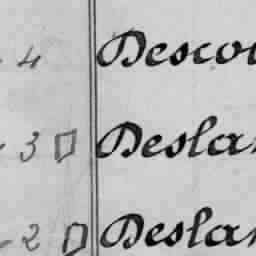 4 Descou
3 Deslan
2 Deslan